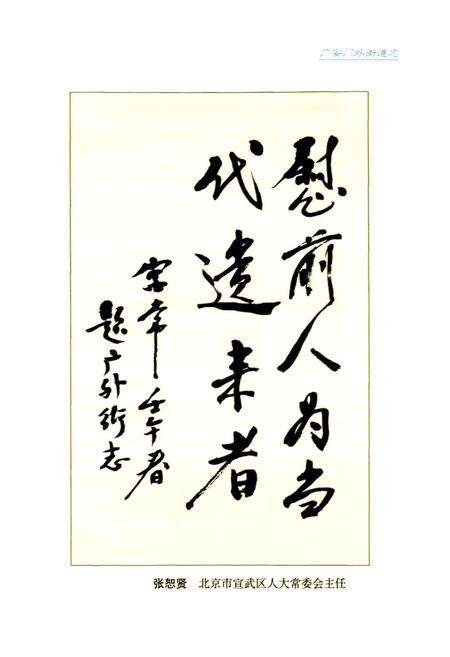 广安门外街道志
慰前人为当
代遗来者
壬午春
题广外街志
张恕贤 北京市宣武区人大常委会主任